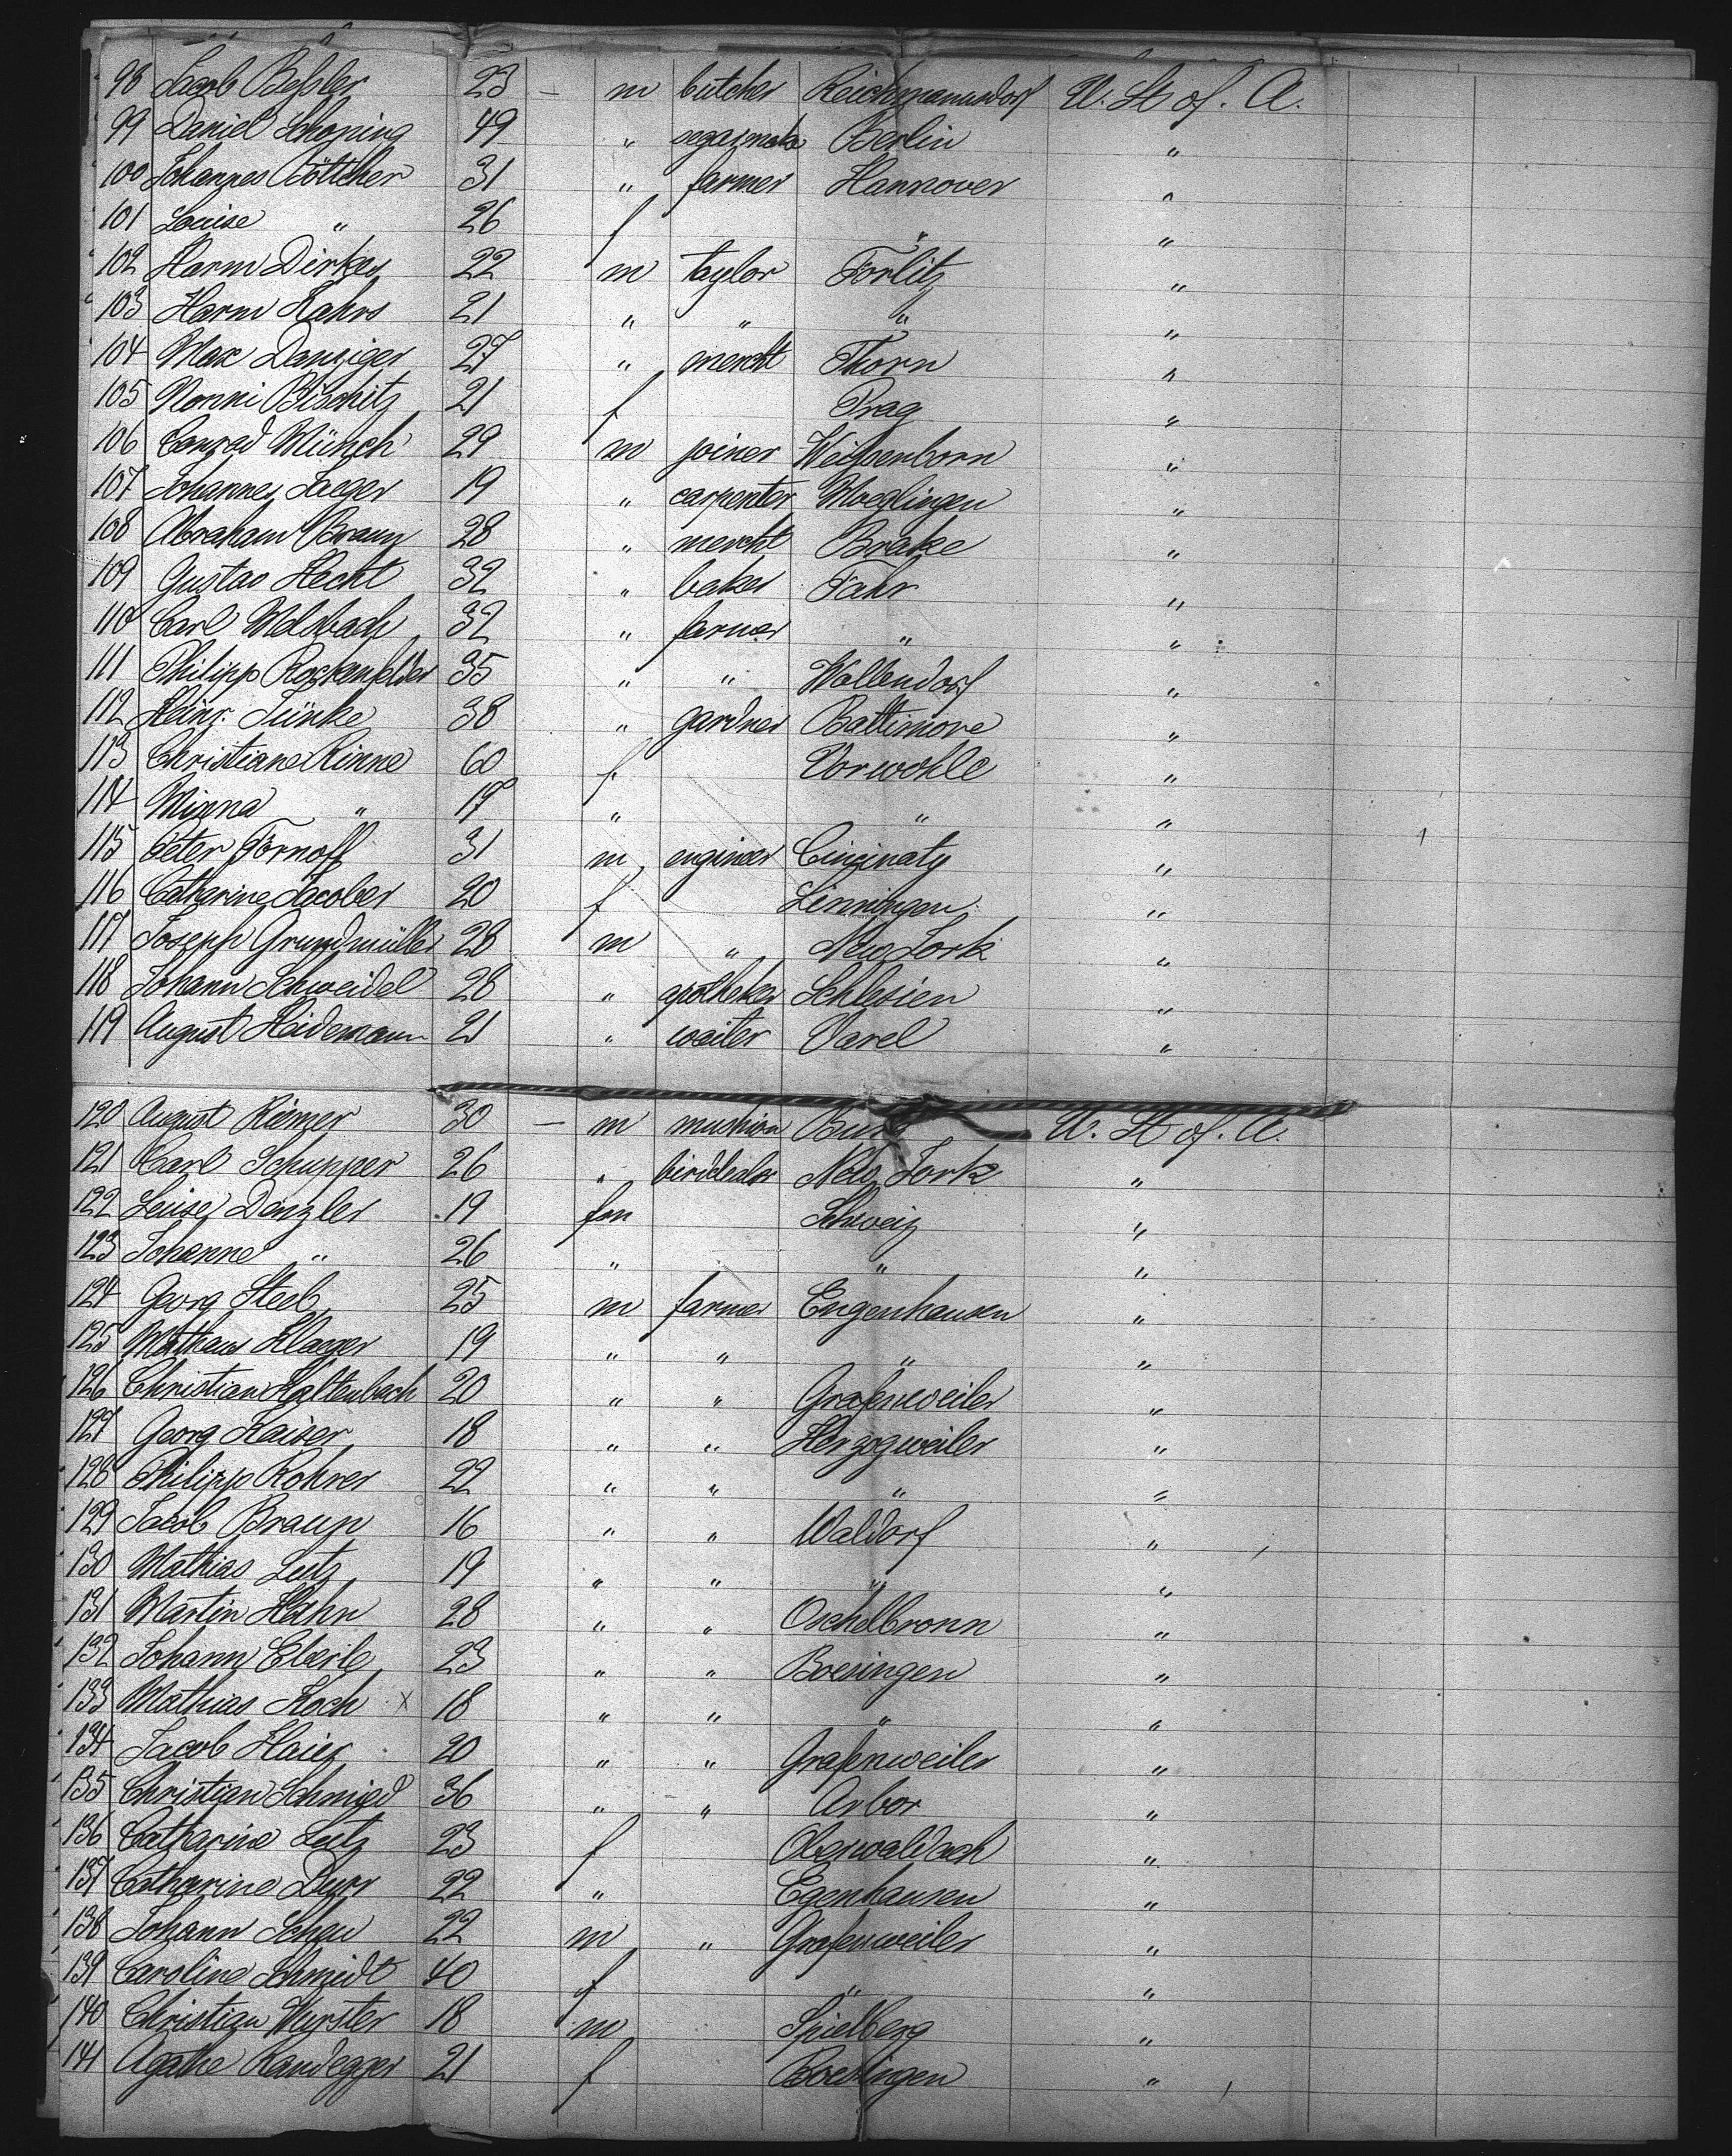 98 Jacob Beßler 23 — m butcher Reichmannsdorf U. St of. A.
99 Daniel Schoning 49 " segarmaker Berlin "
100 Johannes Böttcher 31 " farmer Hannover "
101 Louise " 26 f " "
102 Harm Dirkes 22 m taylor Forlitz "
103 Harm Kahrs 21 " " " "
104 Max Danziger 27 " mercht Thorn "
105 Nonni Bischitz 21 f Prag "
106 Conrad Münch 29 m joiner Weißenborn "
107 Johannes Jaeger 19 " carpenter Moeglingen "
108 Abraham Braun 28 " mercht Brake "
109 Gustav Hecht 32 " baker Fahr "
110 Carl Welsbach 32 " farmer " "
111 Philipp Rockenfelder 35 " " Wollendorf "
112 Heinr. Jünke 38 " gardner Baltimore "
113 Christiane Rinne 60 f Vorwohle "
114 Minna " 19 " " "
115 Peter Fornoff 31 m engineer Cincinaty "
116 Catharine Jacober 20 f Linningen "
117 Joseph Grundmüller 28 m " New York "
118 Johann Schweidel 28 " apotheker Schlesien "
119 August Heidemann 21 " waiter Varel "
120 August Riemer 30 — m U. St of. A.
121 Carl Schupper 26 " birddealer New York "
122 Leuise Denzler 19 fm Schweiz "
123 Johanne " 26 " " "
124 Georg Steeb 25 m farmer Engenhausen "
125 Mathaus Klaeger 19 " " " "
126 Christian Kaltenbach 20 " " Grafenweiler "
127 Georg Kaiser 18 " " Herzogweiler "
128 Philipp Rohrer 22 " " " "
129 Jacob Braun 16 " " Waldorf "
130 Mathias Lutz 19 " " " "
131 Martin Hahn 28 " " Oschelbronn "
132 Johann Eberle 23 " " Boesingen "
133 Mathias Koch x 18 " " " "
134 Jacob Haier 20 " " Grafenweiler "
135 Christian Schmied 36 " " Arbor "
136 Catharine Lutz 23 f Oberwaldach "
137 Catharine Durr 22 " Egenhausen "
138 Johann Schau 22 m " Grafenweiler "
139 Caroline Schmidt 40 f " "
140 Christian Wurster 18 m Spielberg "
141 Agathe Randegger 21 f Boesingen "